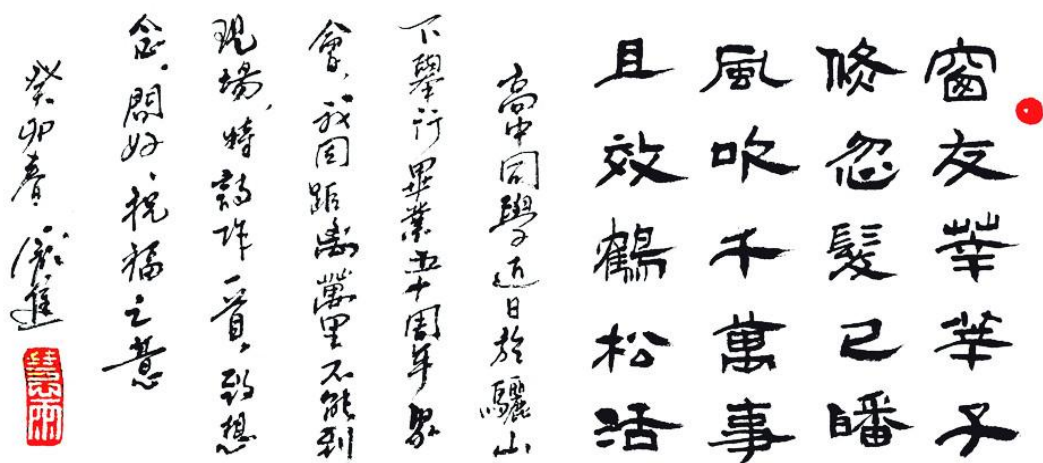 窗友莘莘子
倏忽髮已皤
風吹千萬事
且效鶴松活
高中同學近日於驪山
下舉行畢業五十周年聚
會，我因距離萬里不能到
現場，特詩作一首，致想
念、問好、祝福之意
癸卯春